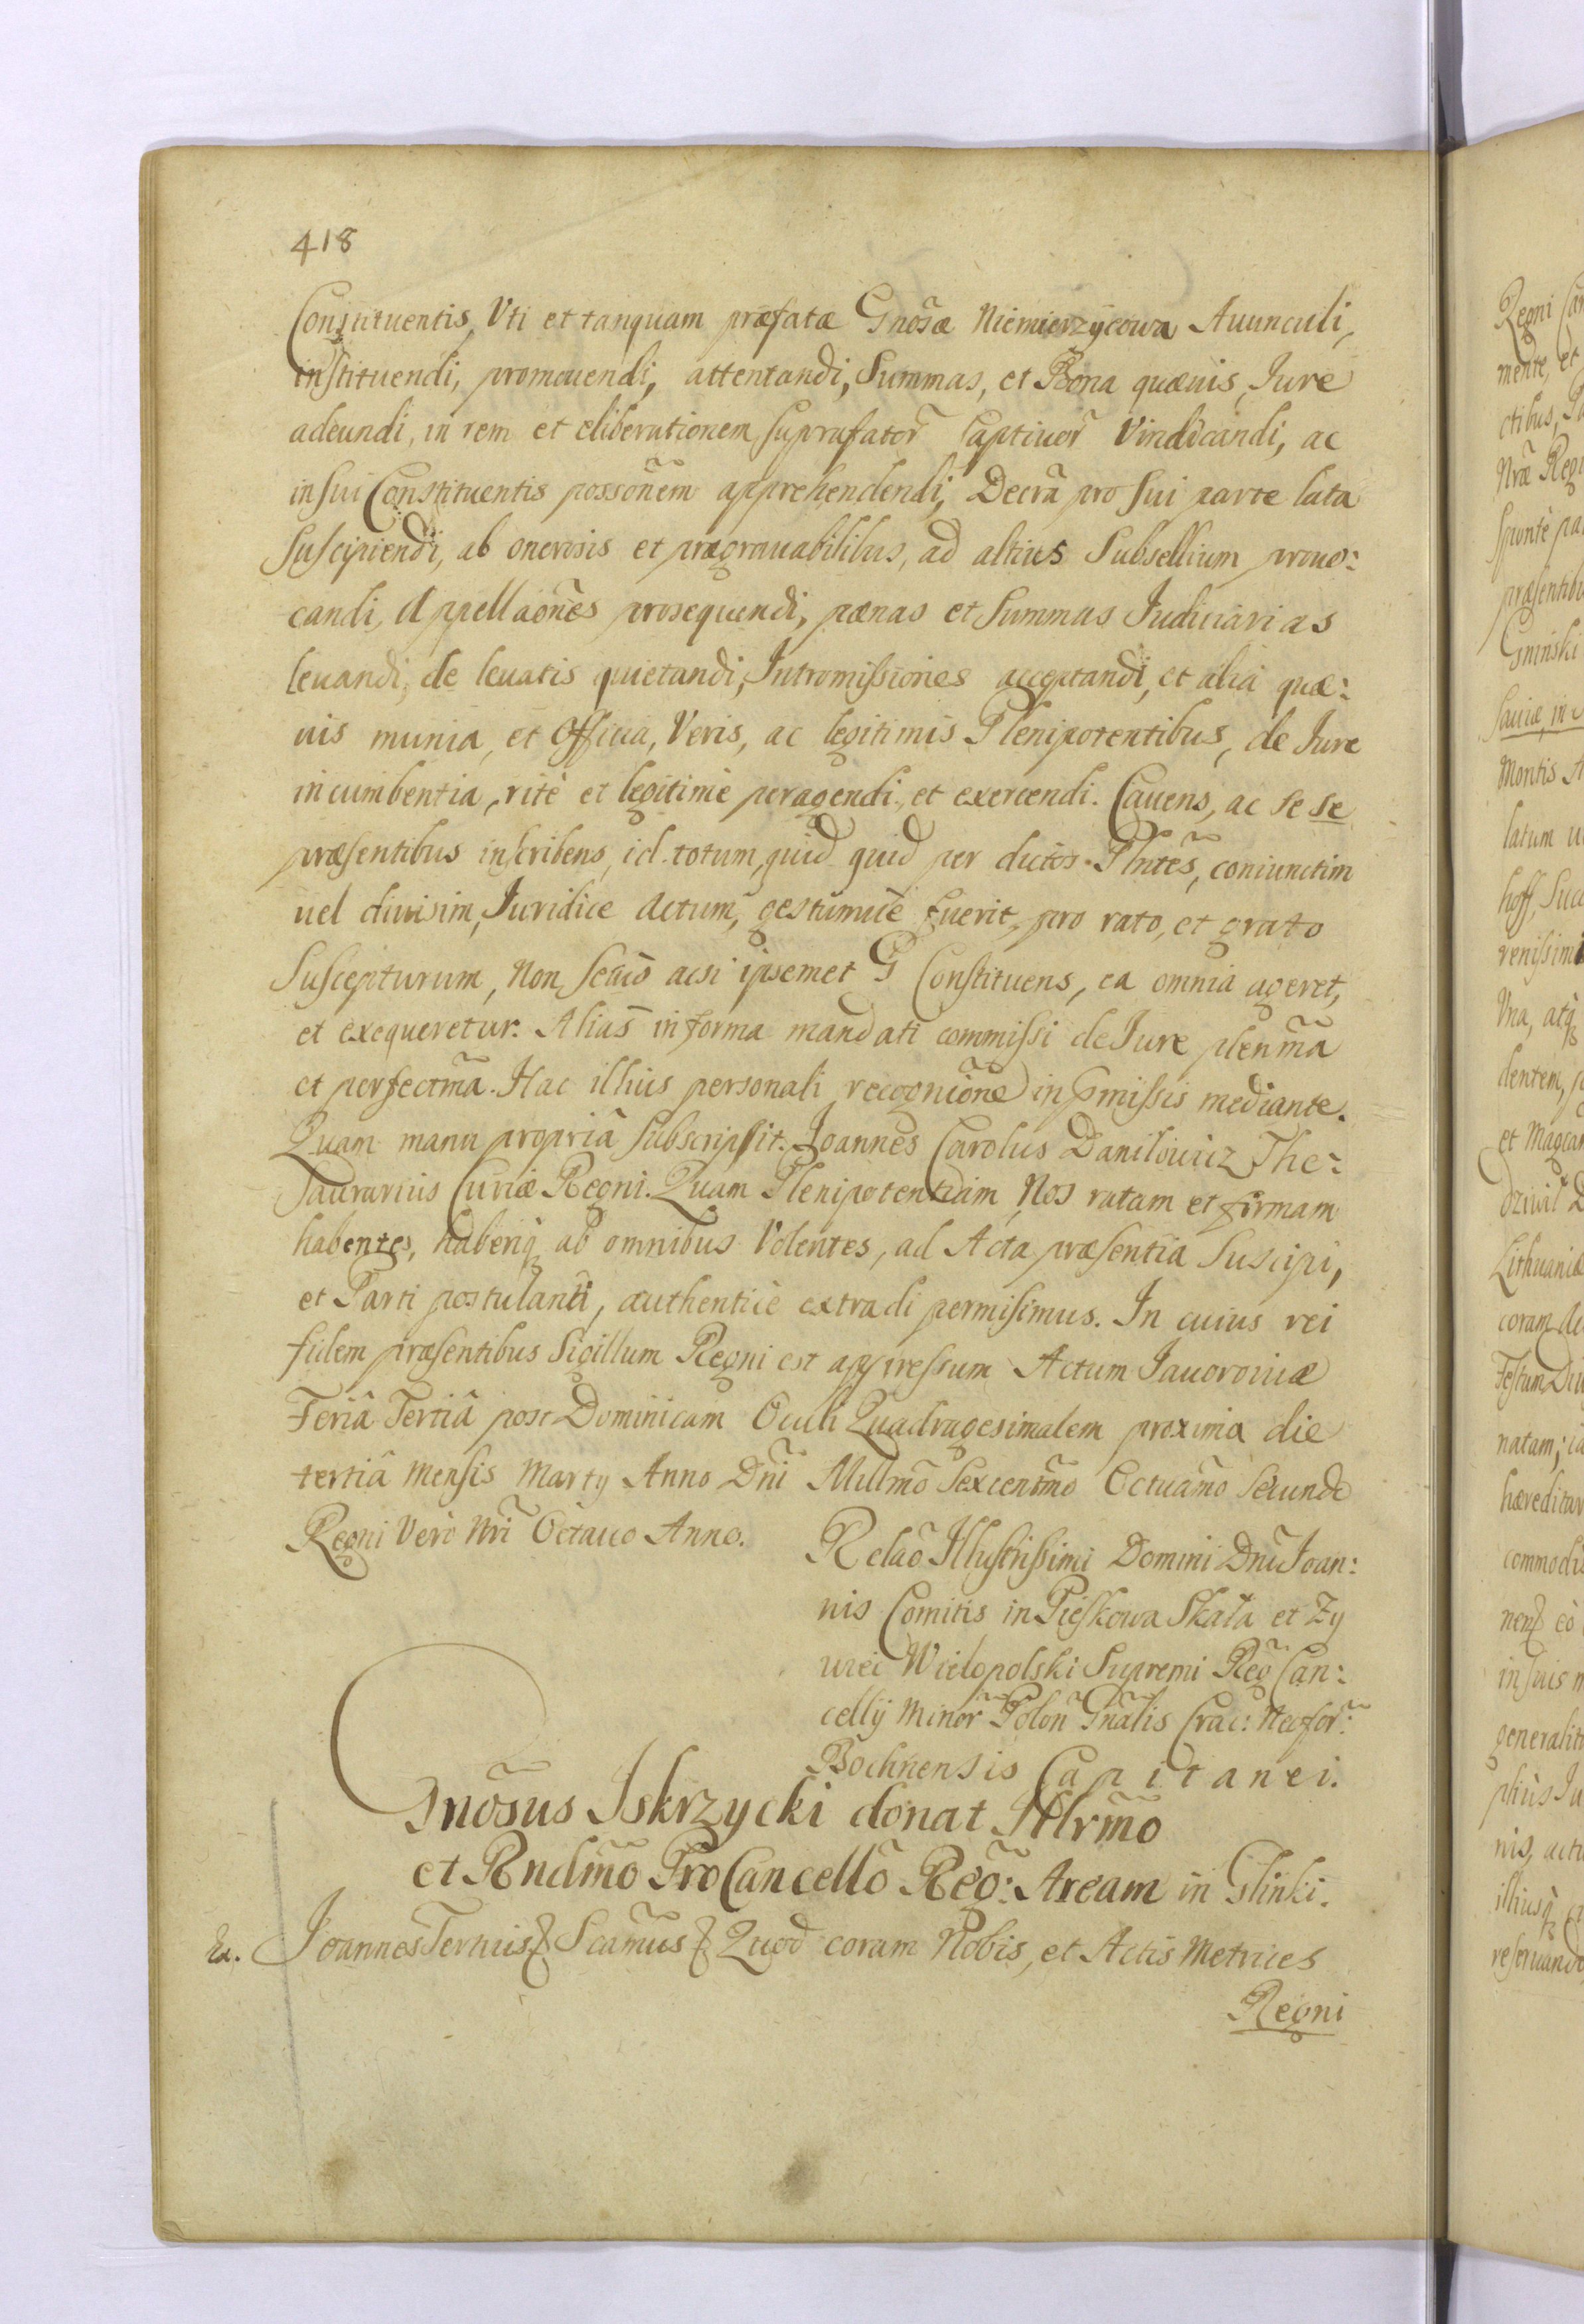 418
Constituentis, Vti et tanquam præfatæ Gnõsæ Niemierzycowa Auunculi,
instituendi, promouendi, attentandi, Summas, et Bona quæuis, Jure
adeundi, in rem et eliberationem suprafator̃ Captiuor̃ Vindicandi, ac
in sui Constituentis possõnem apprehendendi, Decrã pro sui parte lata
Suscipiendi, ab onerosis et prægrauabilibus, ad altius Subsellium prouo:
candi, Appellãones prosequendi, pænas et Summas Judiciarias
leuandi, de leuatis quietandi, Intromissiones acceptandi, et alia quæ:
uis munia, et Officia, Veris, ac legitimis Plenipotentibus, de Jure
incumbentia, ritè et legitimè peragendi, et exercendi. Cauens, ac se se
præsentibus inscribens, id totum, quid quid per dictos Plñtes, coniunctim
uel diuisim, Juridice actum, gestumúe fuerit, pro rato, et grato
Suscepturum, Non Secus acsi ipsemet G Constituens, ea omnia ageret,
et exequeretur. Alias in forma mandati commissi de Jure plenm̃a
et perfectm̃a. Hac illius personali recognĩone in pmissis mediante.
Quam manu propriâ Subscripsit. Joannes Carolus Daniłowicz The:
Saurarius Curiæ Regni. Quam Plenipotentiam Nos ratam et firmam
habentes, haberiq ab omnibus Volentes, ad Acta præsentia Suscipi,
et Parti postulanti, authenticè extradi permisimus. In cuius rei
fidem præsentibus Sigillum Regni est appressum Actum Jauoroviæ
Feriâ Tertiâ post Dominicam Oculi Quadragesimalem proxima die
tertiâ Mensis Marty Anno Dñi Millmõ Sexcentm̃o Octuãmo Secundo
Regni Verò Nrĩ Octauo Anno.
Relaõ Illustrissimi Domini Dnĩ Joan:
nis Comitis in Pieskowa Skała et Zy
wiec Wielopolski Supremi Reg̃ Can:
cellÿ Minor̃ Polon̄ Gñalis Crac: Neofor:
Bochnensis Capitanei.
Gnõsus Iskrzycki donat Illrm̃o
et Rndm̃o ProCancellõ Reg: Aream in Glinki.
Ex. Joannes Tertius Scam̃us Quod coram Nobis, et Actis Metrices
Regni